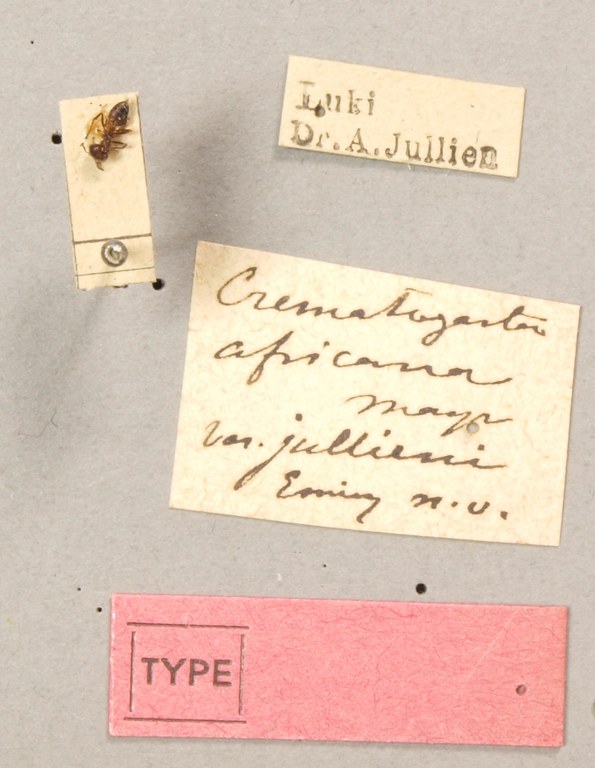 Luki
Dr. A. Jullien
Crematogaster
africana
Mayr
var. jullieni
Emery n. v.
TYPE